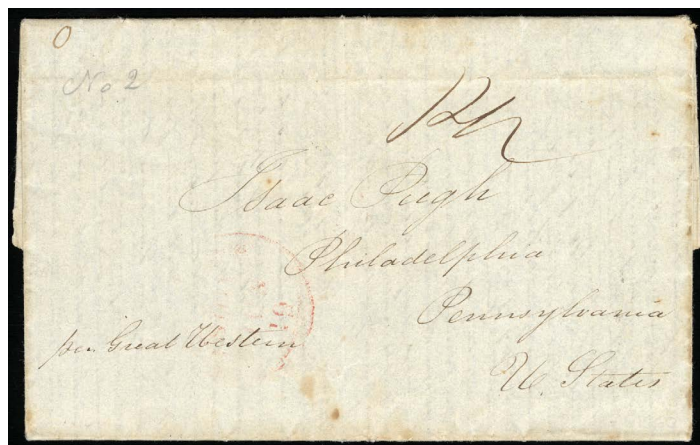 O
No 2
Isaac Pugh
Philadelphia
Pennsylvania
U. States
per Great Western